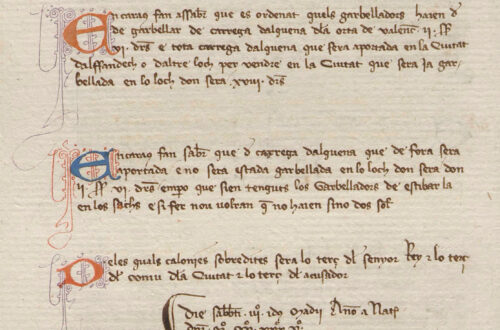 Encaraq fan assabr que es ordenat quels garbelladors haien d
de garbellar de carrega dalquena dla orta de Valent ii ss
vi drs e tota carrega dalquena que sera aportada en la Ciutat
dalffandech o daltre loch per vendre en la Ciutat que sera ja gar
bellada en lo loch don sera xviii drs
Encaraq fan sabr que d cargrega dalquena que de fora sera
aportada e no sera estada garbellada en lo loch don sera don
ii ss vi drs empo que sien tenguts los Garbelladors de estibar la
en los sachs e si fer nou volran q no haien sino dos sol
Deles quals calonies sobredites sera lo terç dl senyor Rey e lo terç
dl comu dla Ciutat e lo terç dl acusador
Die sabbti iiio ido madii Anno a Nat